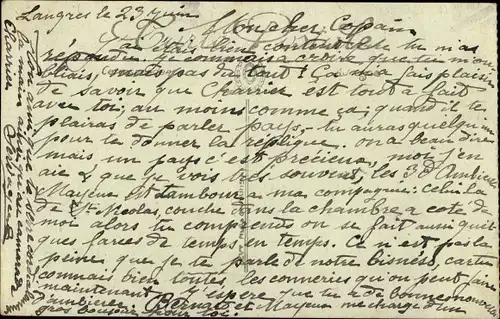 Langres le 23 Juin
Mon cher Copain
J'ai été bien content que tu m'as
répondu. Je commençais à croire que tu m'ou-
bliais, mais pas du tout! Ça m'a fais plaisir
de savoir que Charrier est tout à fait
avec toi; au moins comme ça, quand il te
plairas de parler pays, tu auras quelqu'un
pour te donner la réplique. on a beau dire
mais un pays c'est précieux, moi j'en
ai & que je vois très souvent, les
Mayeux est tambour a ma compagnie: celui la
de St Nicolas, couche dans la chambre a coté de
moi alors tu comprends on se fait aussi quel-
ques farces de temps en temps. Ce n'est pas la
peine que je te parle de notre bisness, car tu
connais bien toutes les conneries qu'on peut faire
maintenant. J'espère que tu a de bonne nouvelles
d'Ambierre. et Mayeux me charge d'un
gros bonjour pour toi.
la main ainsi qu'au camarade
Charrier